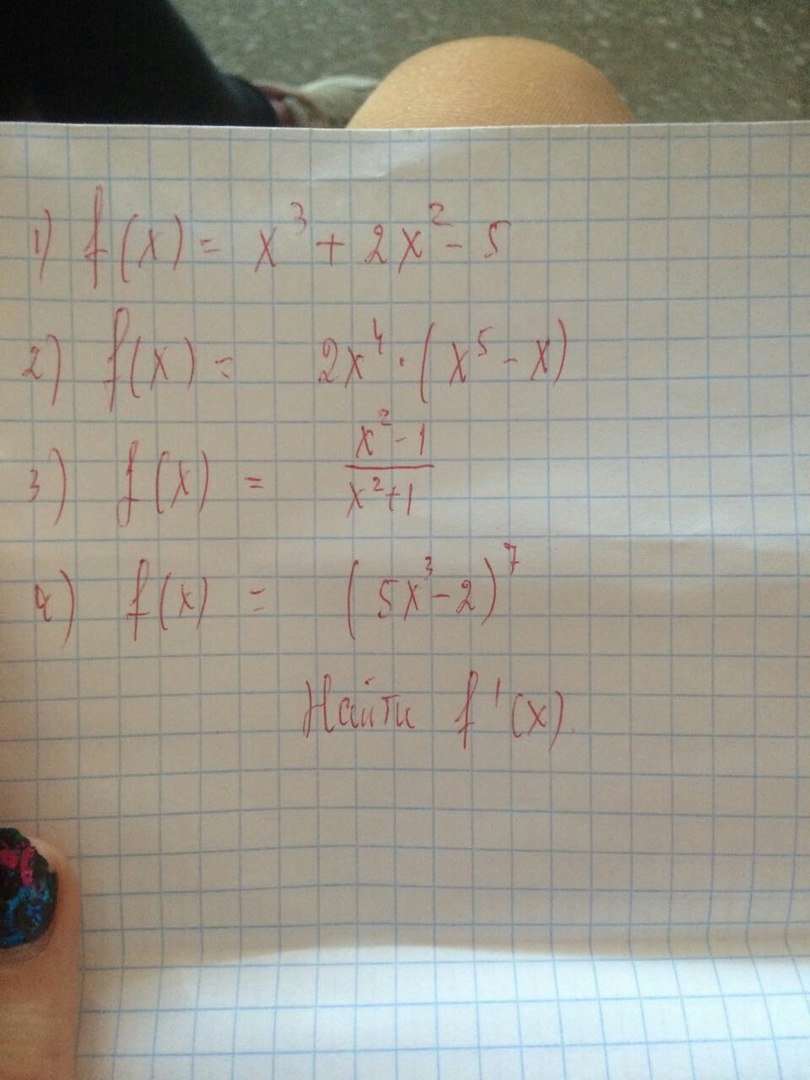 1) f(x) = x³ + 2x² - 5
2) f(x) = 2x⁴ · (x⁵ - x)
3) f(x) = (x² - 1)/(x² + 1)
4) f(x) = (5x³ - 2)⁷
Найти f'(x)